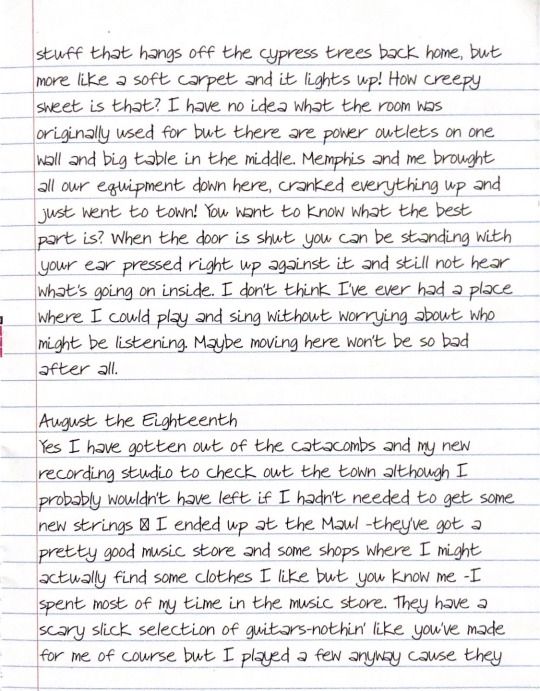 stuff that hangs off the cypress trees back home, but
more like a soft carpet and it lights up! How creepy
sweet is that? I have no idea what the room was
originally used for but there are power outlets on one
wall and big table in the middle. Memphis and me brought
all our equipment down here, cranked everything up and
just went to town! You want to know what the best
part is? When the door is shut you can be standing with
your ear pressed right up against it and still not hear
what's going on inside. I don't think I've ever had a place
where I could play and sing without worrying about who
might be listening. Maybe moving here won't be so bad
after all.
August the Eighteenth
Yes I have gotten out of the catacombs and my new
recording studio to check out the town although I
probably wouldn't have left if I hadn't needed to get some
new strings I ended up at the Maul -they've got a
pretty good music store and some shops where I might
actually find some clothes I like but you know me -I
spent most of my time in the music store. They have a
scary slick selection of guitars-nothin' like you've made
for me of course but I played a few anyway cause they